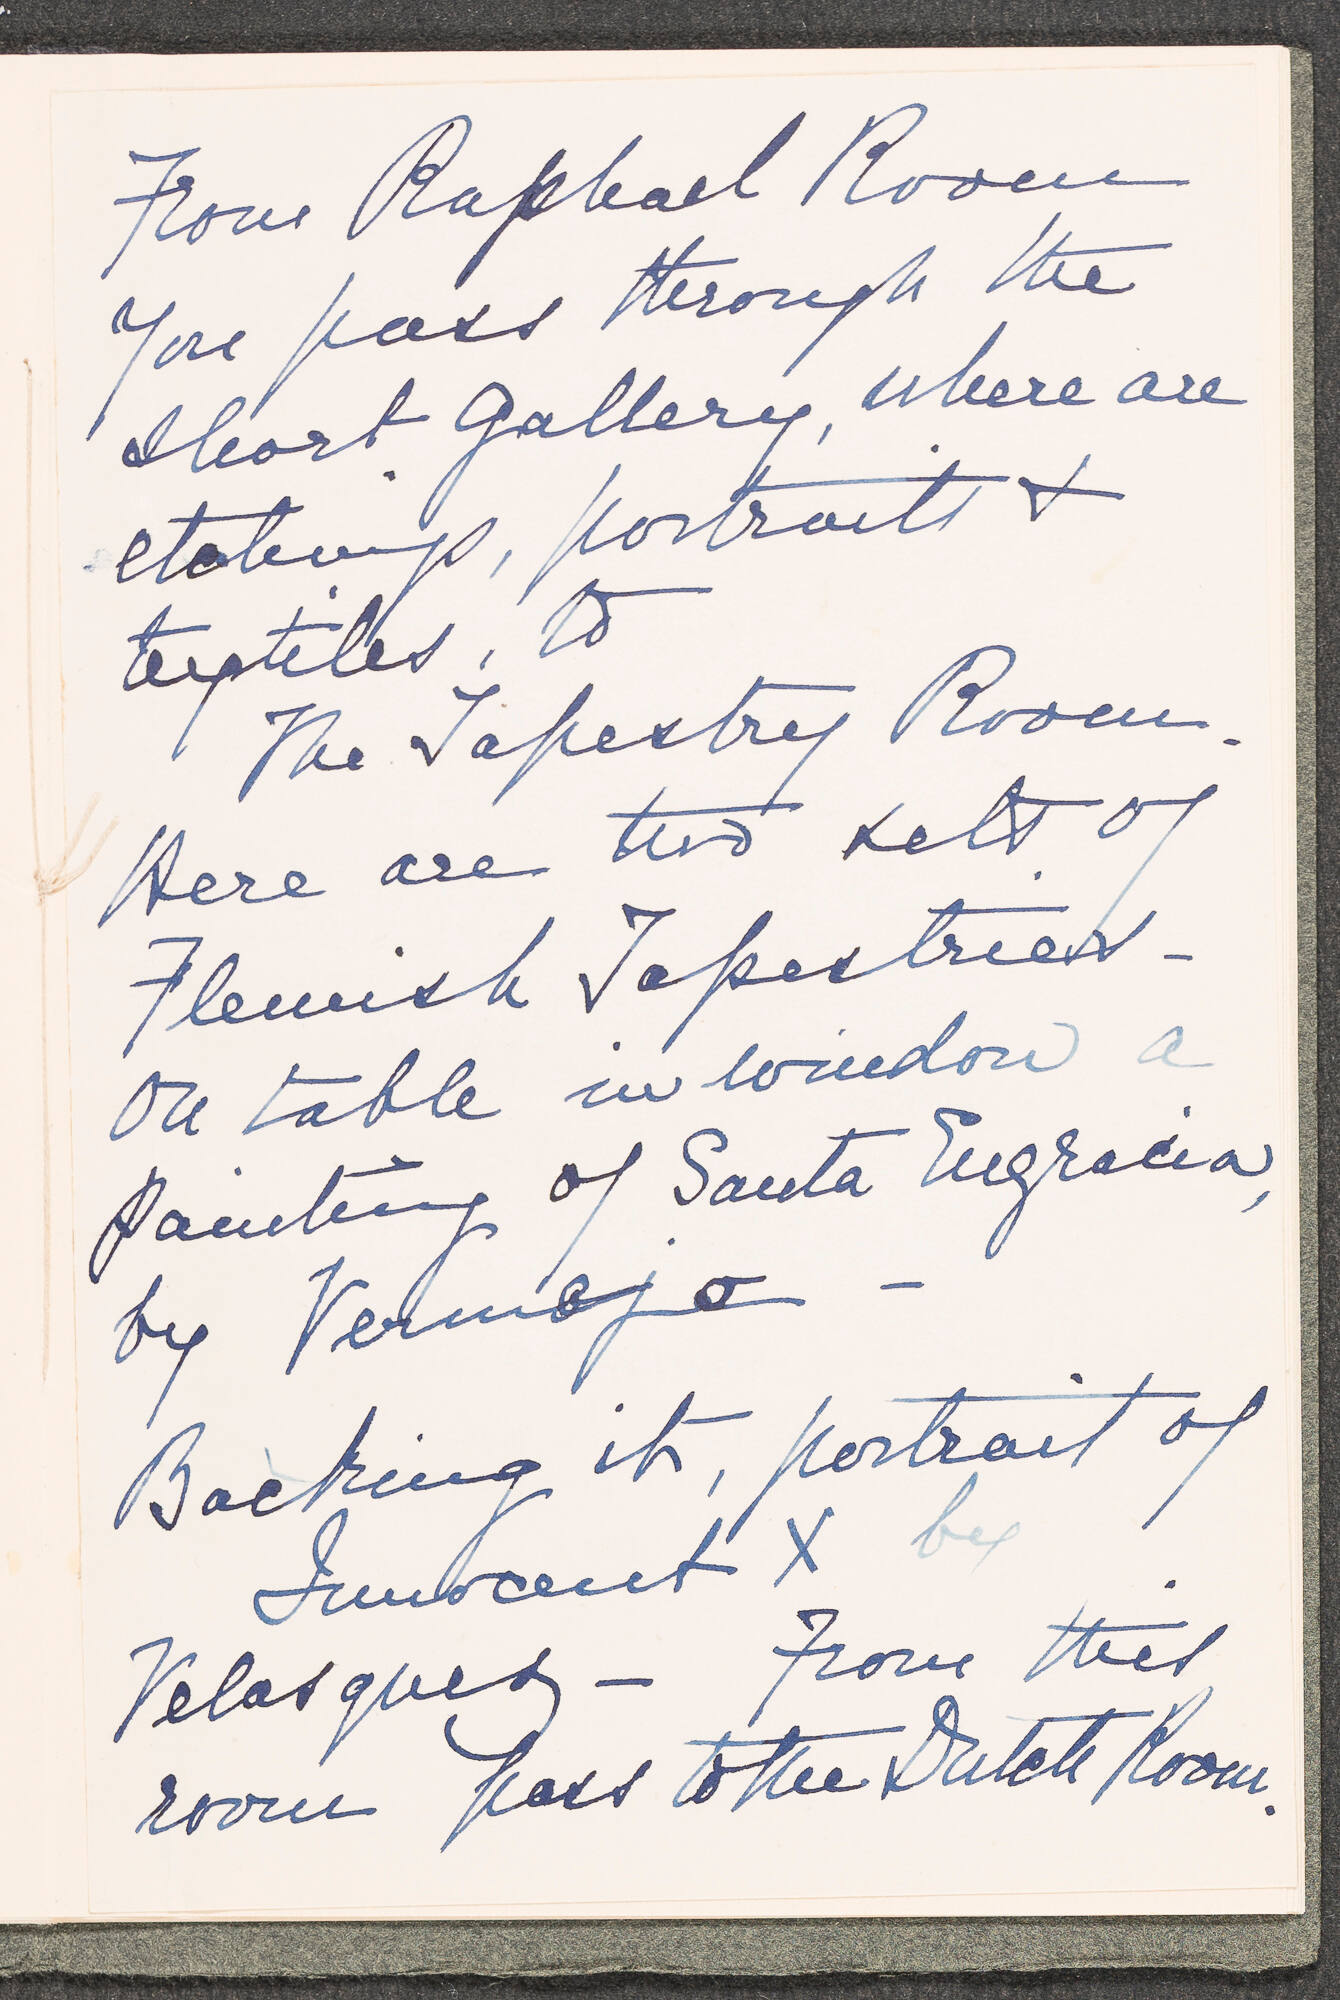 From Raphael Room
You pass through the
short Gallery, where are
etchings, portraits +
textiles, to
The Tapestry Room.
Here are two sets of
Flemish Tapestries -
On table in window a
painting of Santa Engracia,
by Vermejo -
Backing it, portrait of
Innocent X by
Velasquez - From this
room pass to the Dutch Room.